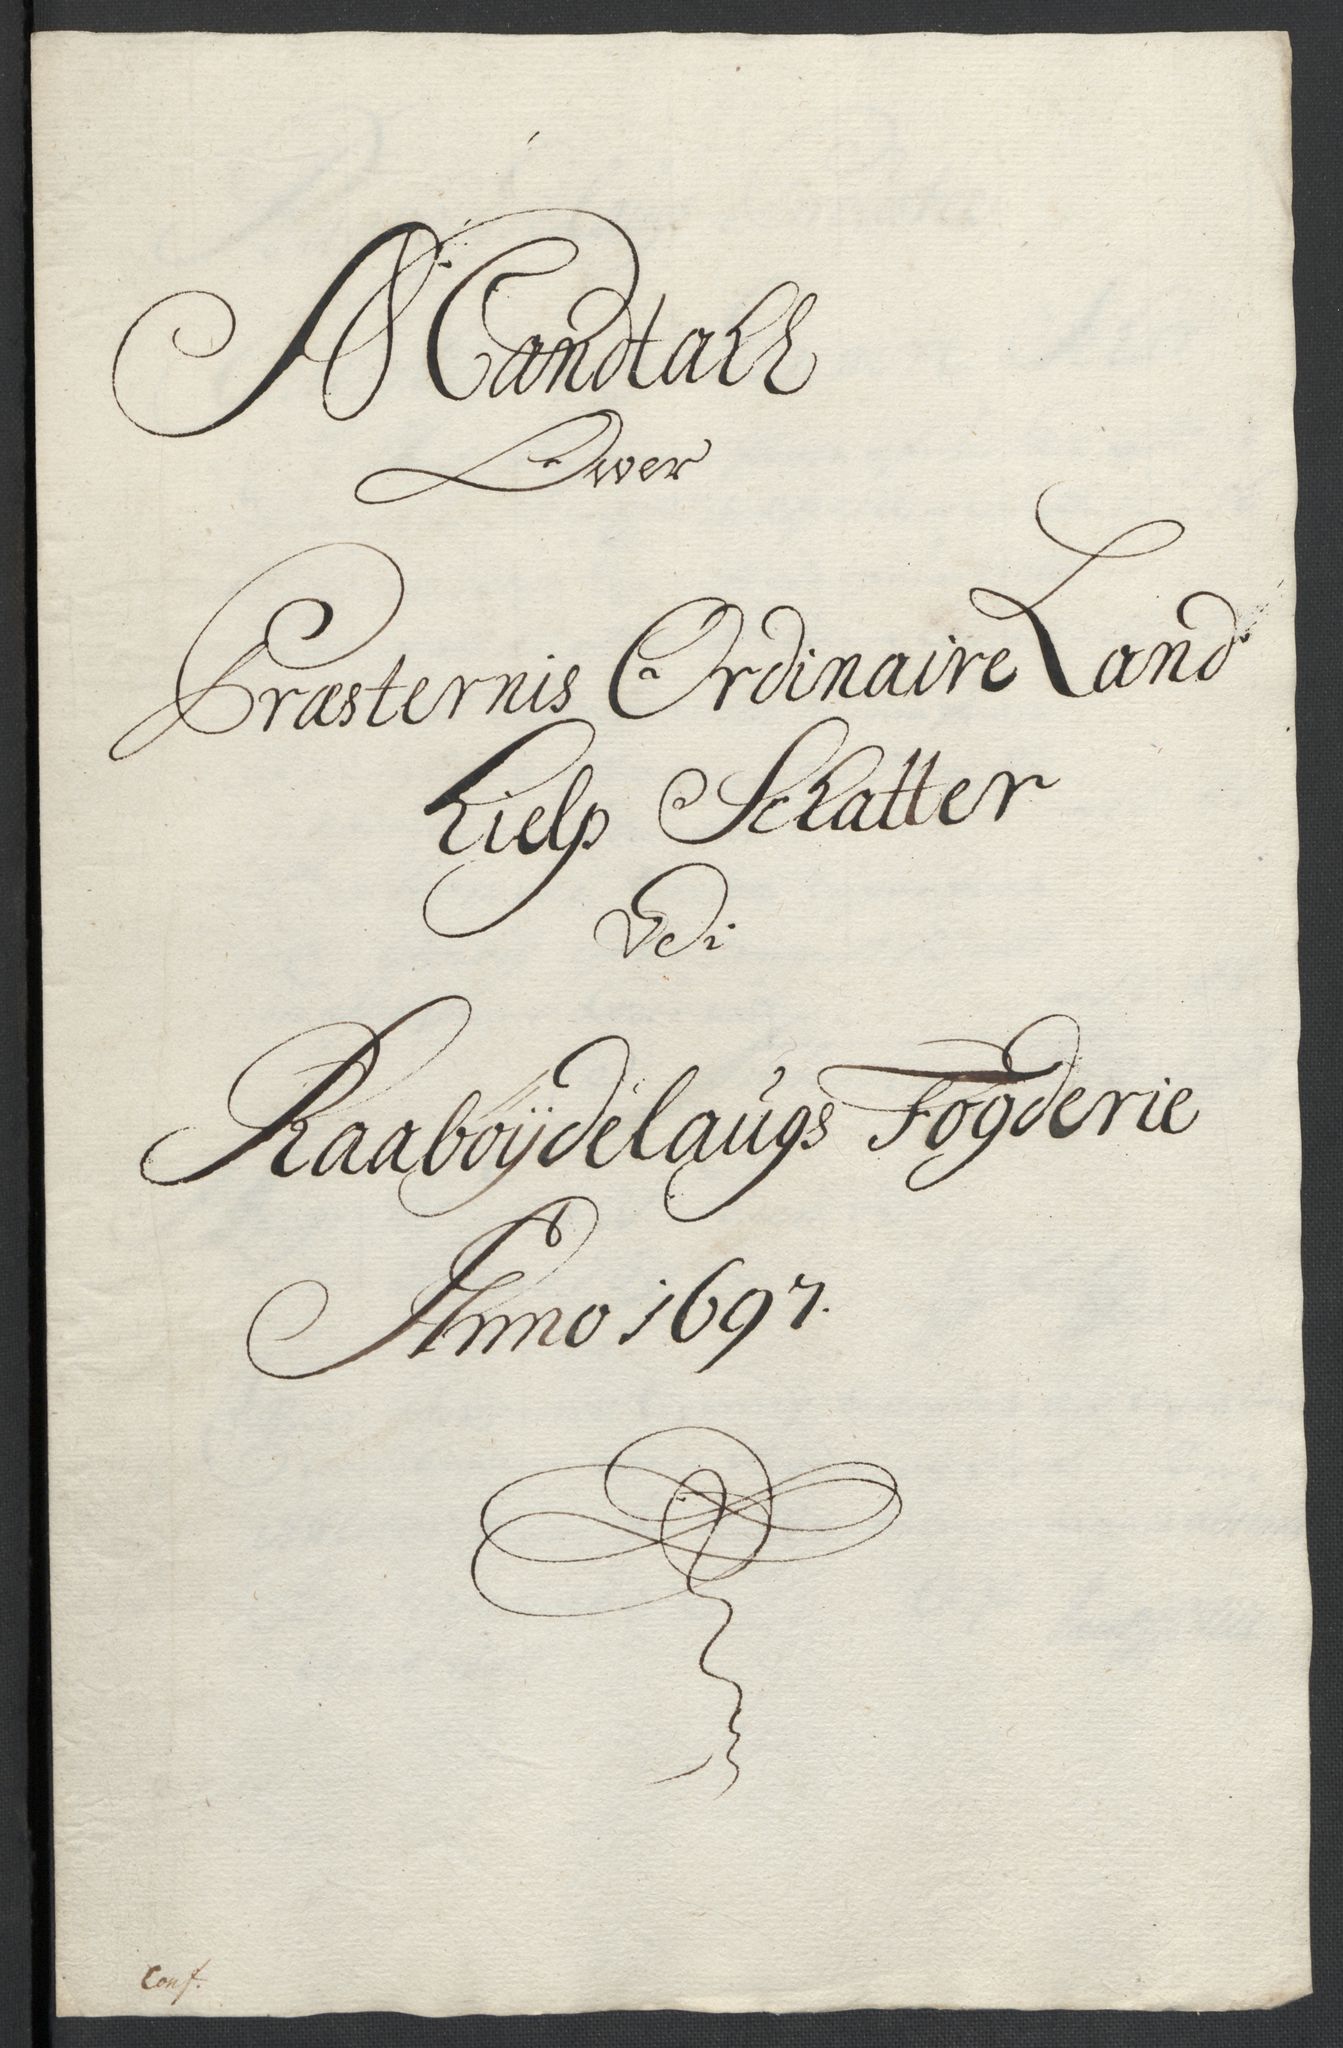 Mandtall
Over
Præsternis Ordinaire Land
hielp Schatter
Udi
Raabøÿdelaugs Fogderie
Anno 1697.
Conf.